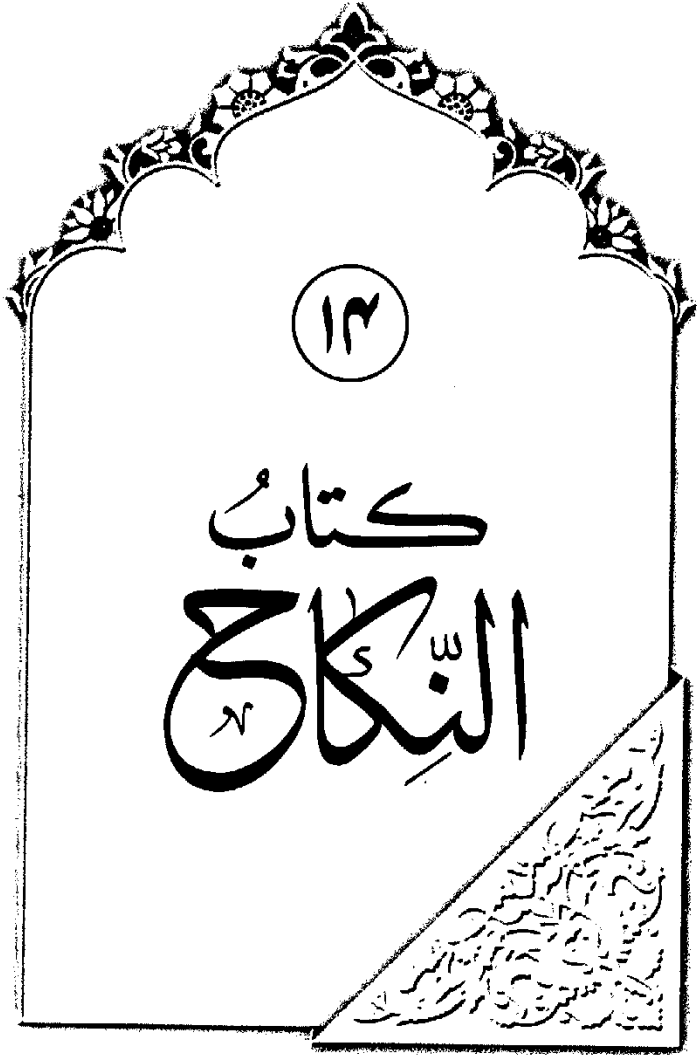 ١٣
كتابُ
النِّكاح